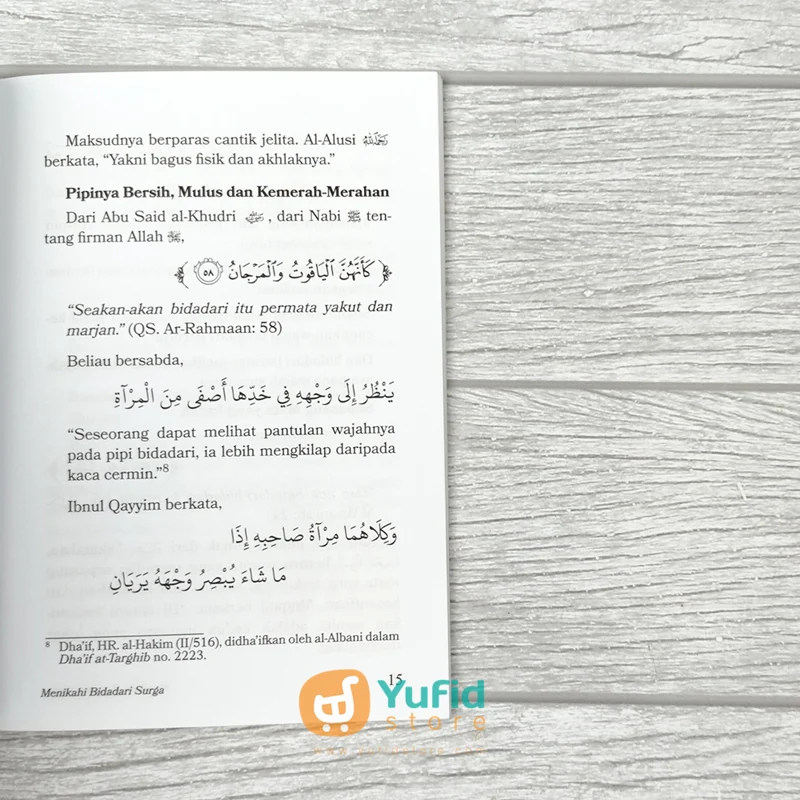 Maksudnya berparas cantik jelita. Al-Alusi رحمه الله
berkata, “Yakni bagus fisik dan akhlaknya.”
Pipinya Bersih, Mulus dan Kemerah-Merahan
Dari Abu Said al-Khudri , dari Nabi ﷺ ten-
tang firman Allah ,
﴿ كَأَنَّهُنَّ ٱلْيَاقُوتُ وَٱلْمَرْجَانُ ٥٨ ﴾
“Seakan-akan bidadari itu permata yakut dan
marjan.” (QS. Ar-Rahmaan: 58)
Beliau bersabda,
يَنْظُرُ إِلَى وَجْهِهِ فِي خَدِّهَا أَصْفَى مِنَ الْمِرْآةِ
“Seseorang dapat melihat pantulan wajahnya
pada pipi bidadari, ia lebih mengkilap daripada
kaca cermin.”⁸
Ibnul Qayyim berkata,
وَكِلَاهُمَا مِرْآةُ صَاحِبِهِ إِذَا
مَا شَاءَ يُبْصِرُ وَجْهَهُ يَرَيَانِ
⁸ Dha’if, HR. al-Hakim (II/516), didha’ifkan oleh al-Albani dalam
Dha’if at-Targhib no. 2223.
Menikahi Bidadari Surga
15
Yufid
store